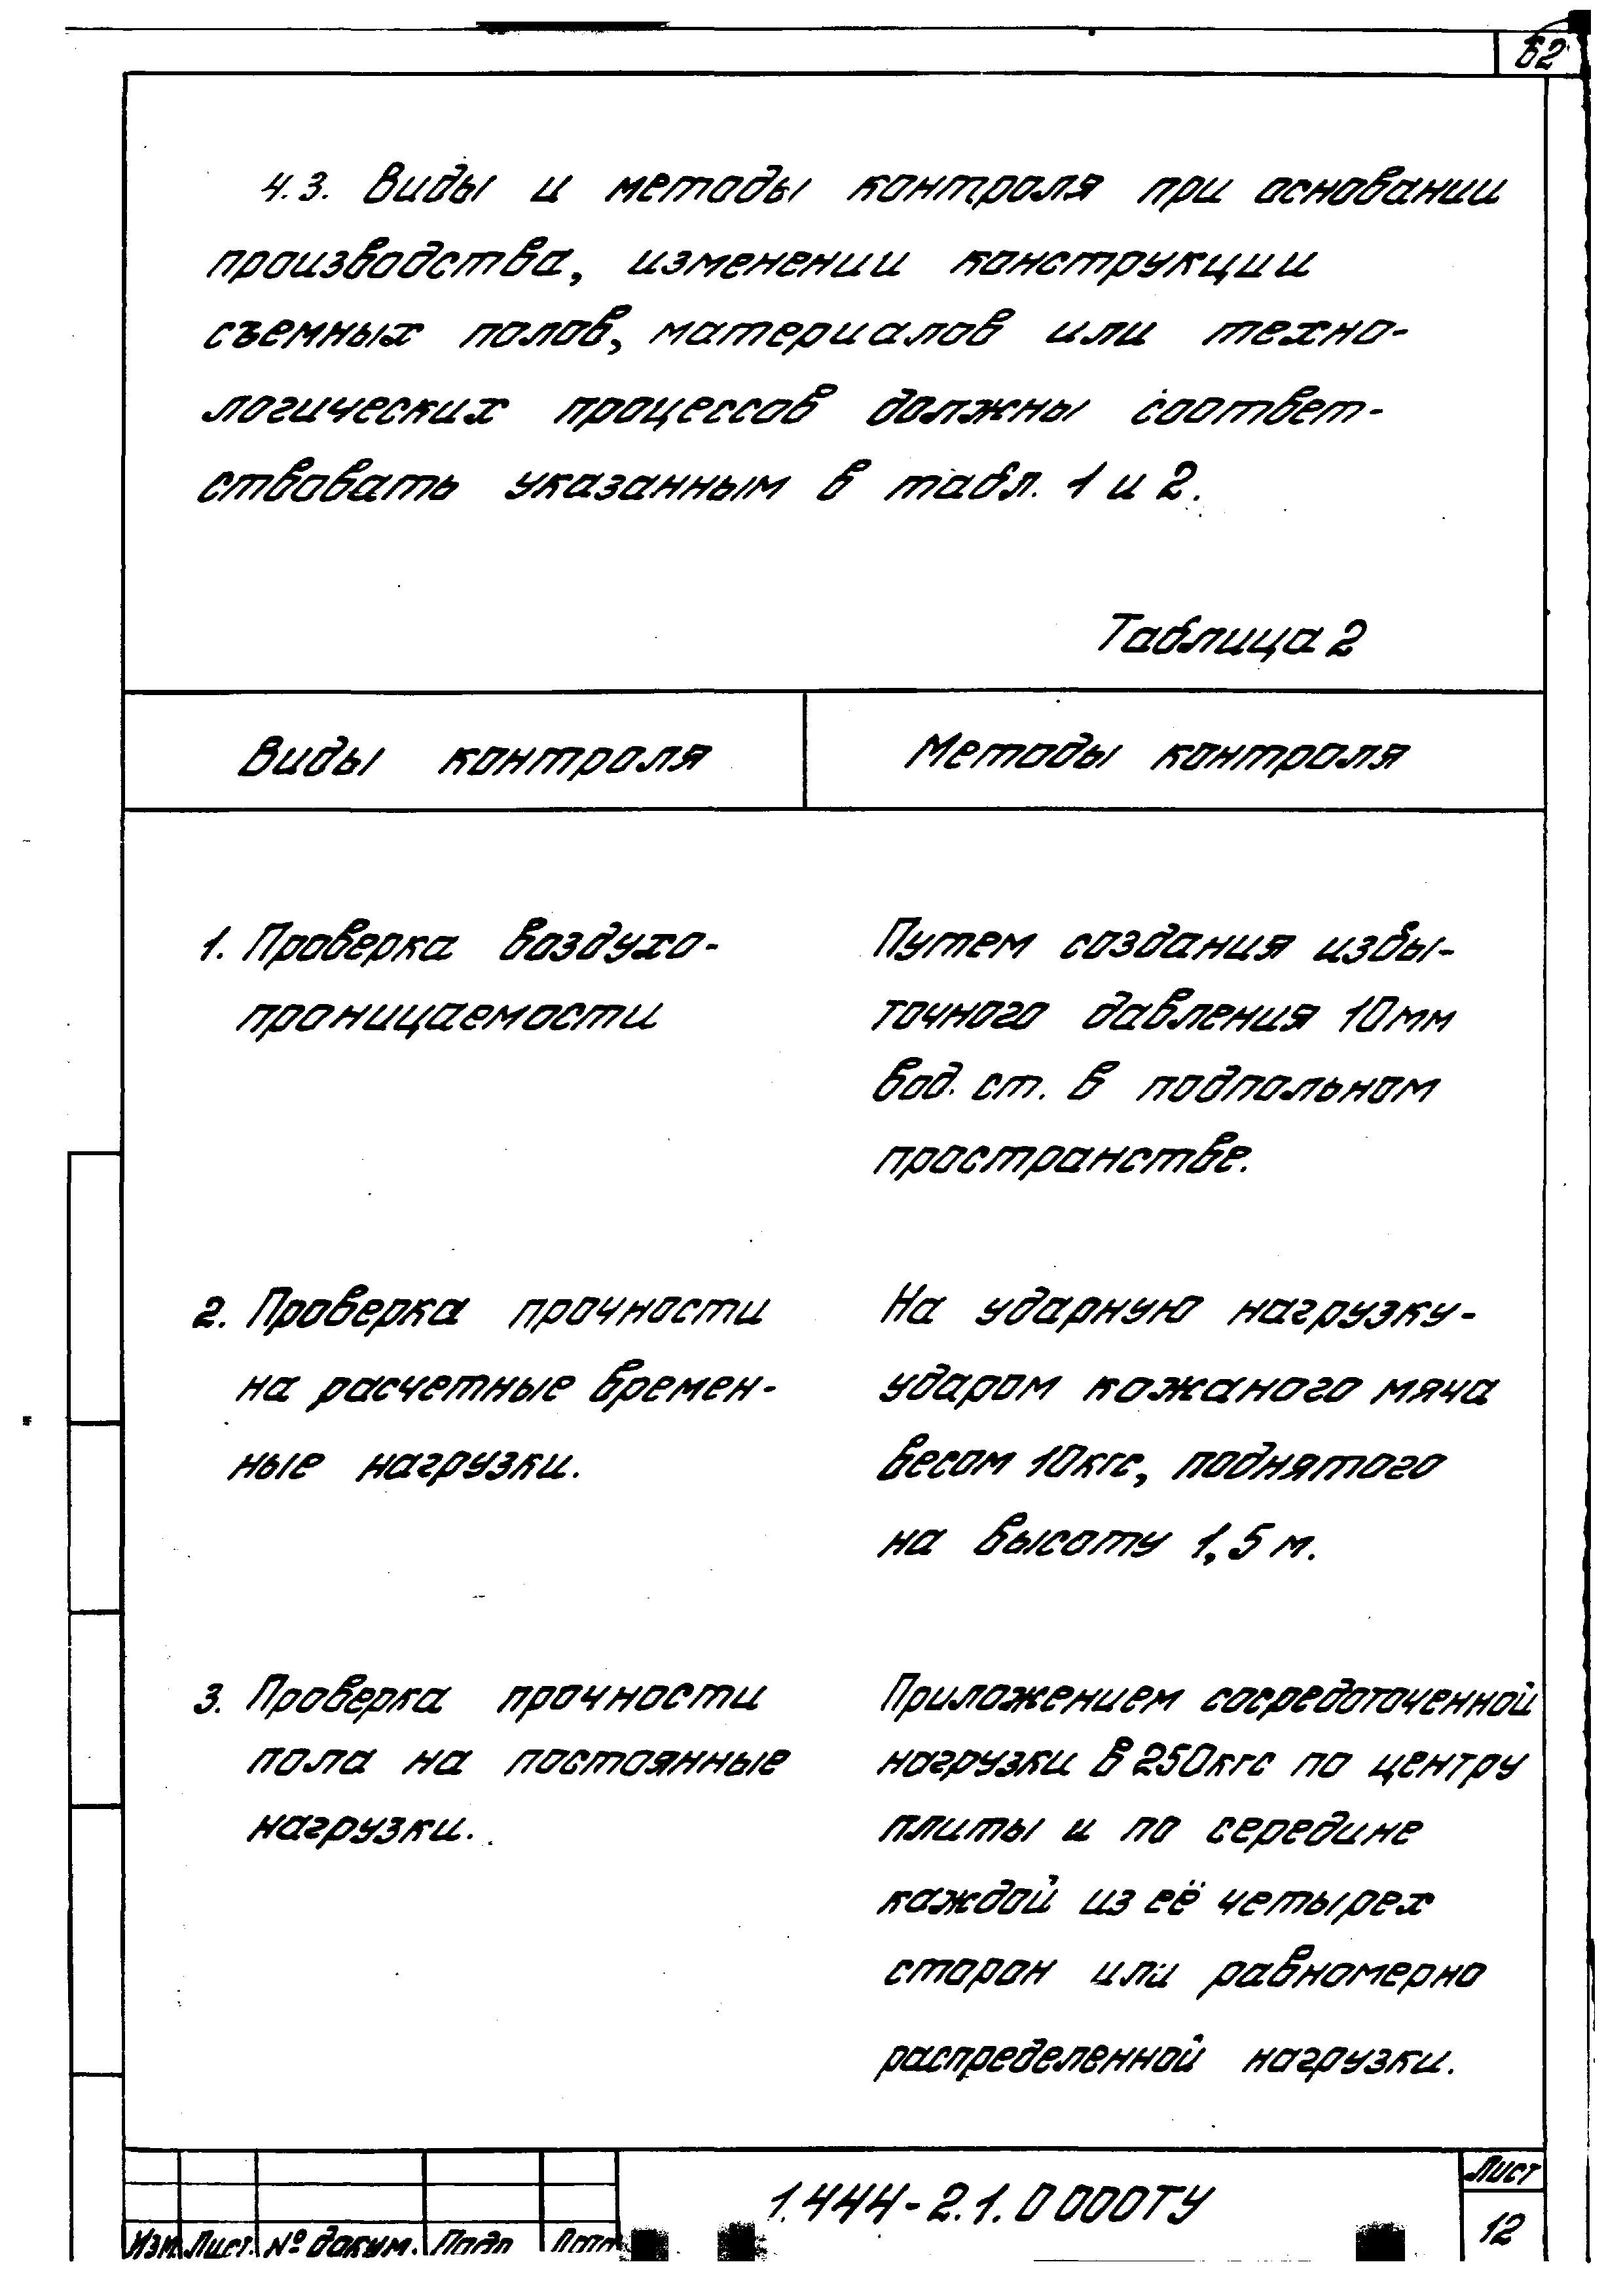 62
4.3. Виды и методы контроля при основании
производства, изменении конструкции
съемных полов, материалов или техно-
логических процессов должны соответ-
ствовать указанным в табл. 1 и 2.
Таблица 2
Виды контроля
Методы контроля
1. Проверка воздухо-
проницаемости
Путем создания избы-
точного давления 10мм
вод. ст. в подпольном
пространстве.
2. Проверка прочности
на расчетные времен-
ные нагрузки.
На ударную нагрузку-
ударом кожаного мяча
весом 10кгс, поднятого
на высоту 1,5 м.
3. Проверка прочности
пола на постоянные
нагрузки.
Приложением сосредоточенной
нагрузки в 250кгс по центру
плиты и по середине
каждой из её четырех
сторон или равномерно
распределенной нагрузки.
1.444-2.1.0 000ТУ
Лист
12
Изм. Лист. № докум. Подп Дата